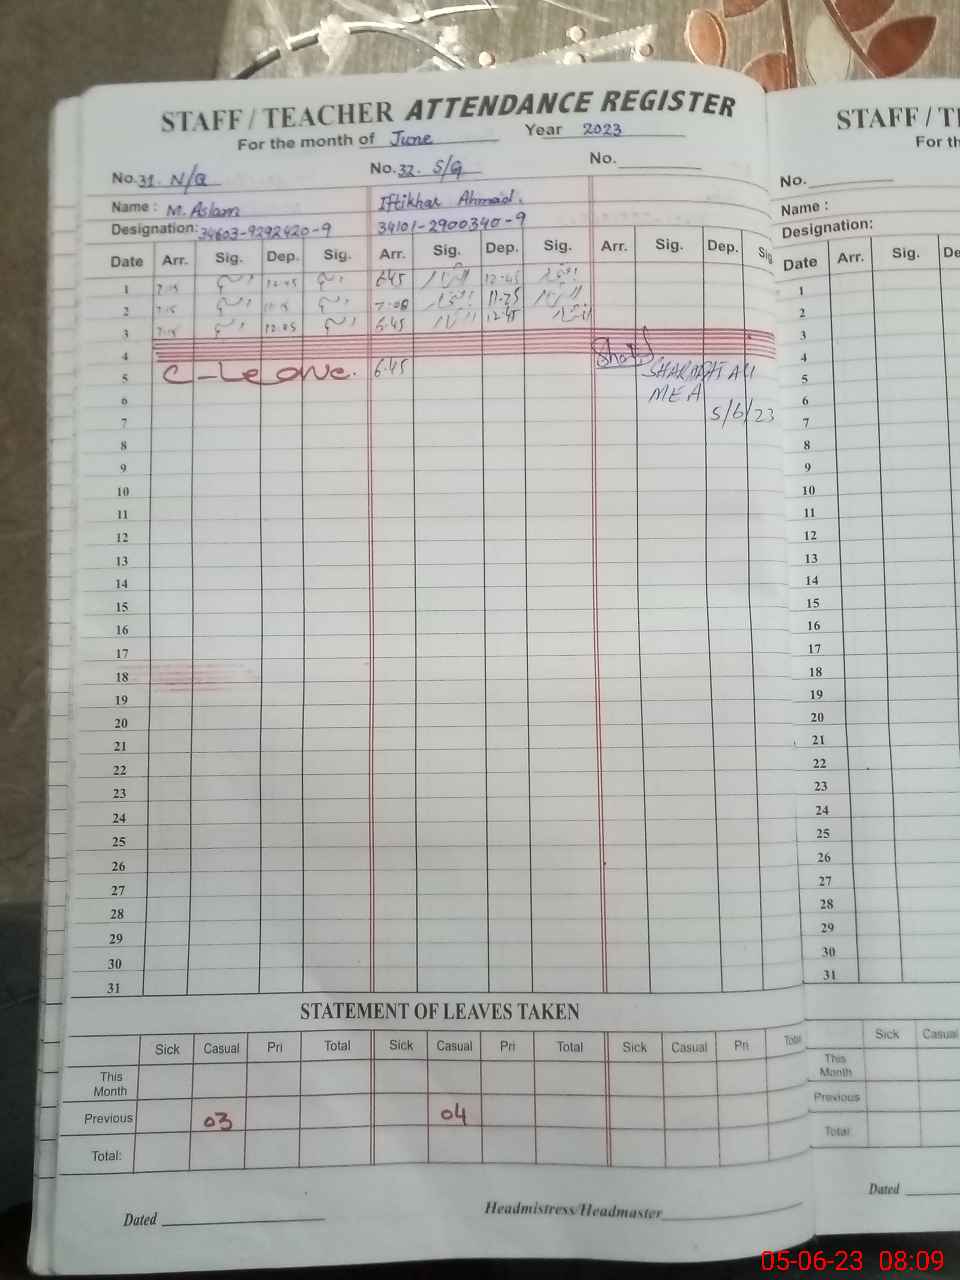 STAFF / TEACHER ATTENDANCE REGISTER
For the month of June Year 2023
No. 31. N/Q No. 32. S/G No.
Name : M. Aslam Iftikhar Ahmad.
Designation: 34603-9292420-9 34101-2900340-9
Date Arr. Sig. Dep. Sig. Arr. Sig. Dep. Sig. Arr. Sig. Dep. Sig
1 7:15 12:45 6:45 12:45
2 7:15 7:00 11:25
3 7:15 12:05 6:45 12:45
4
5 C-Leave. 6:45 SHARAFAT ALI
6 MEA
7 5/6/23
8
9
10
11
12
13
14
15
16
17
18
19
20
21
22
23
24
25
26
27
28
29
30
31
STATEMENT OF LEAVES TAKEN
Sick Casual Pri Total Sick Casual Pri Total Sick Casual Pri Total
This Month
Previous 03 04
Total:
Dated Headmistress/Headmaster
STAFF / TE
For th
No.
Name :
Designation:
Date Arr. Sig. De
1
2
3
4
5
6
7
8
9
10
11
12
13
14
15
16
17
18
19
20
21
22
23
24
25
26
27
28
29
30
31
Sick Casual
This Month
Previous
Total
Dated
05-06-23 08:09